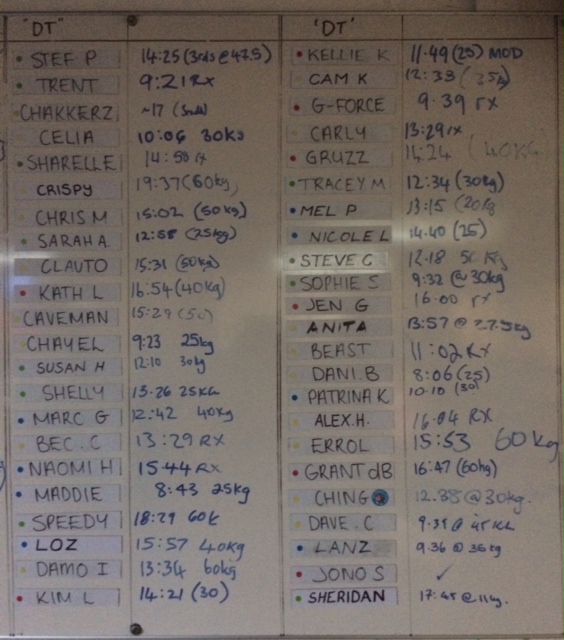 "DT"
STEF P 14:25 (3rds @ 42.5)
TRENT 9:21 RX
CHAKKERZ ~17
CELIA 10:06 30kg
SHARELLE 14:50 rx
CRISPY 19:37 (60kg)
CHRIS M 15:02 (50kg)
SARAH A. 12:58 (25kg)
CLAUTO 15:31 (50kg)
KATH L 16:54 (40kg)
CAVEMAN 15:29 (50)
CHAYEL 9:23 25kg
SUSAN H 12:10 30kg
SHELLY 13.26 25KG
MARC G 12:42 40kg
BEC. C 13:29 RX
NAOMI H 15:44 RX
MADDIE 8:43 25kg
SPEEDY 18:29 60k
LOZ 15:57 40kg
DAMO I 13:34 60kg
KIM L 14:21 (30)
'DT'
KELLIE K 11:49 (25) MOD
CAM K 12:33
G-FORCE 9:39 rx
CARLY 13:29 rx
GRUZZ 14:24 (40KG)
TRACEY M 12:34 (30kg)
MEL P 13:15 (20kg
NICOLE L 14.40 (25)
STEVE C 12.18 50 Kg
SOPHIE S 9:32 @ 30kg
JEN G 16:00 rx
ANITA 13:57 @ 27.5kg
BEAST 11:02 RX
DANI.B 8:06 (25)
PATRINA K 10:10 (30)
ALEX.H. 16:04 RX
ERROL 15:53 60kg
GRANT dB 16:47 (60kg)
CHING 12.38 @ 30kg.
DAVE.C @
LANZ 9:36 @ 36kg
JONO S ✓
SHERIDAN 17:45 @ 11kg.